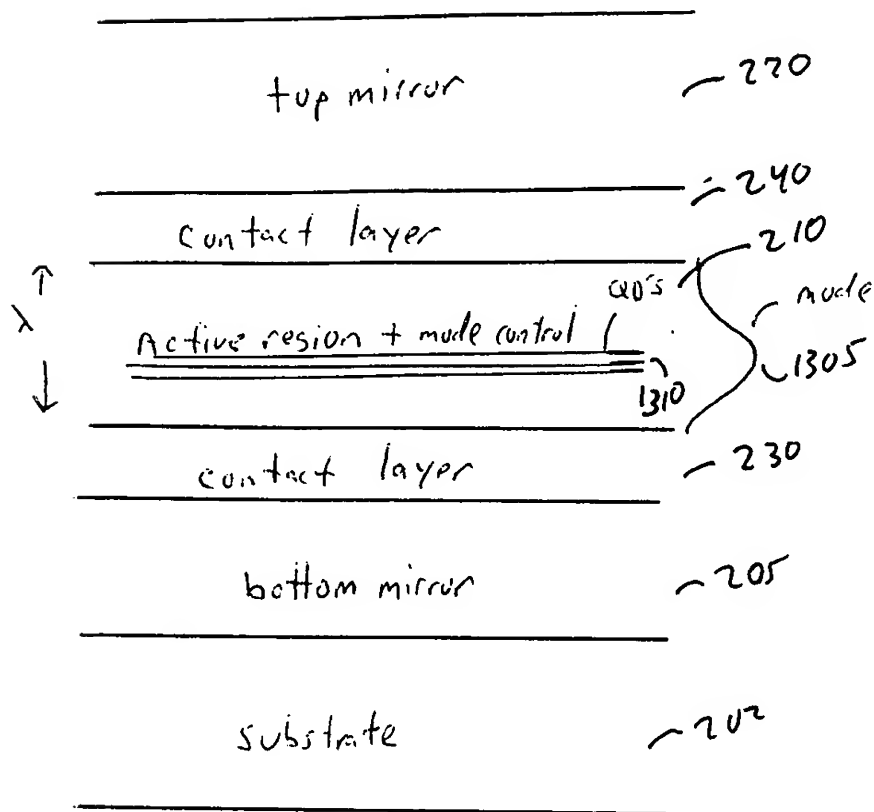 top mirror 220
240
contact layer
210
λ
QD's
mode
Active region + mode control
1305
1310
contact layer 230
bottom mirror 205
substrate 202